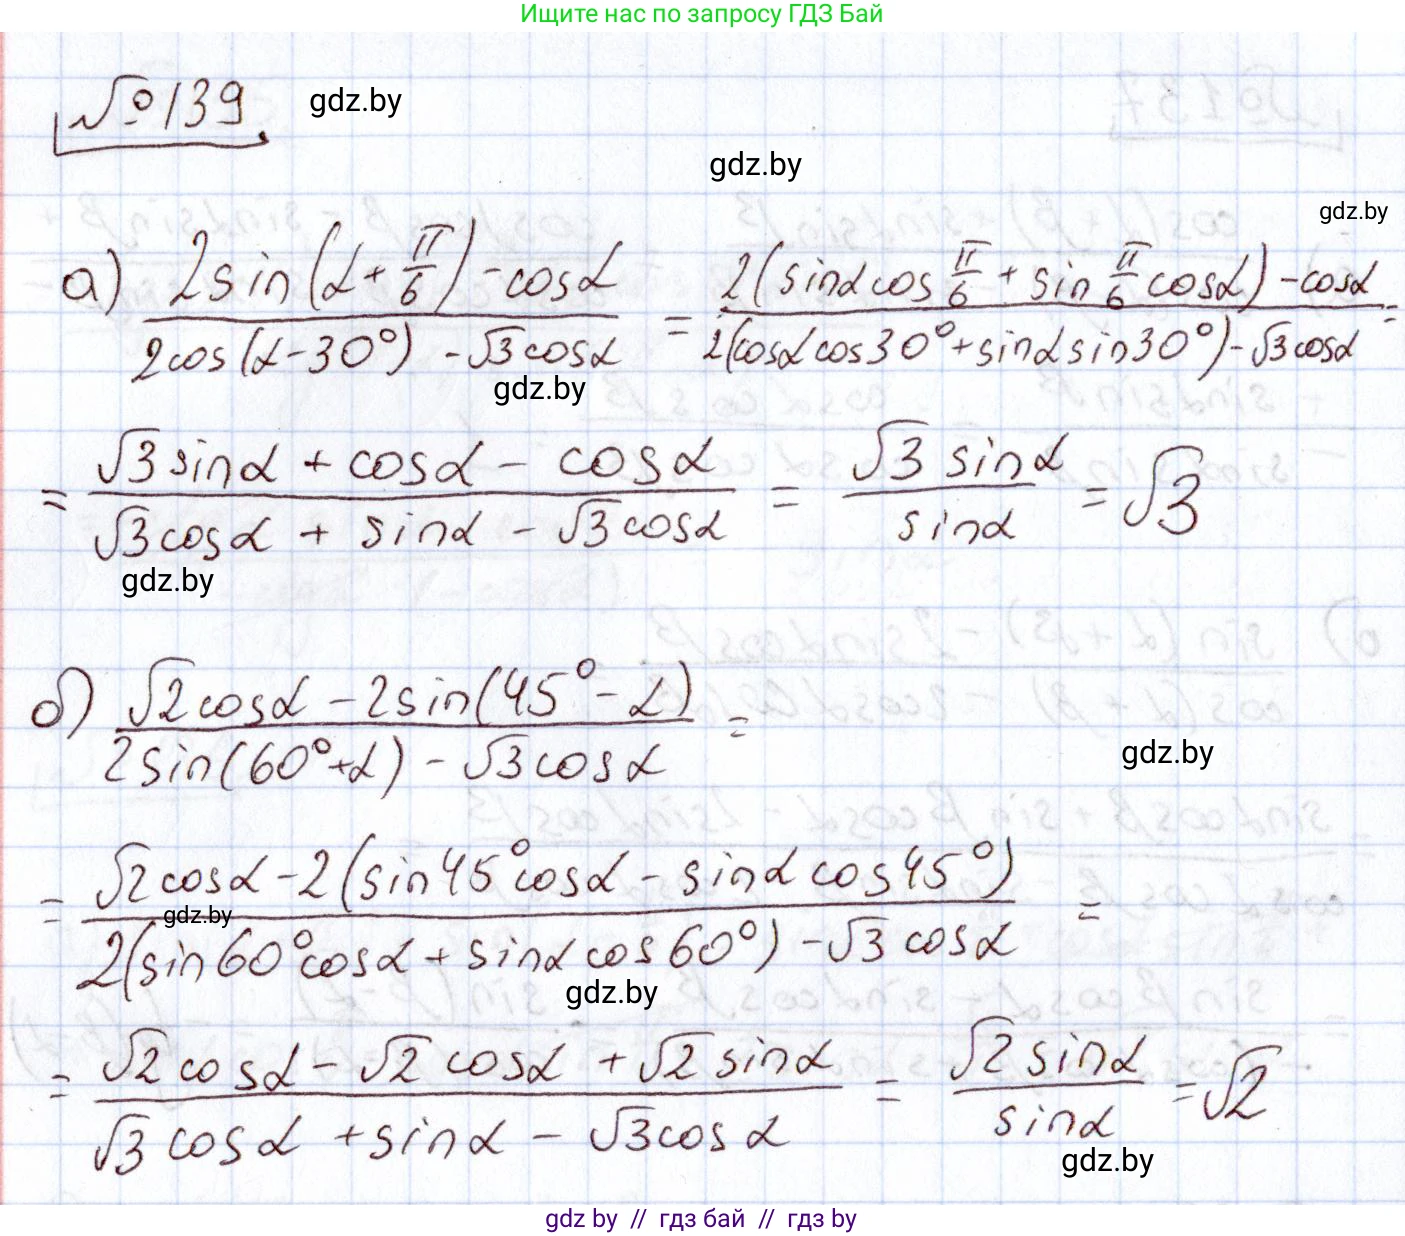 Ищите нас по запросу ГДЗ Бай
№139
gdz.by
gdz.by
gdz.by
а) (2sin(α + π/6) - cosα) / (2cos(α - 30°) - √3cosα) = (2(sinα cos π/6 + sin π/6 cosα) - cosα) / (2(cosα cos30° + sinα sin30°) - √3cosα) =
gdz.by
= (√3 sinα + cosα - cosα) / (√3cosα + sinα - √3cosα) = √3 sinα / sinα = √3
gdz.by
б) (√2cosα - 2sin(45° - α)) / (2sin(60° + α) - √3cosα) =
gdz.by
= (√2cosα - 2(sin45°cosα - sinα cos45°)) / (2(sin60°cosα + sinα cos60°) - √3cosα) =
gdz.by
gdz.by
= (√2cosα - √2cosα + √2 sinα) / (√3cosα + sinα - √3cosα) = √2 sinα / sinα = √2
gdz.by
gdz by // гдз бай // гдз by